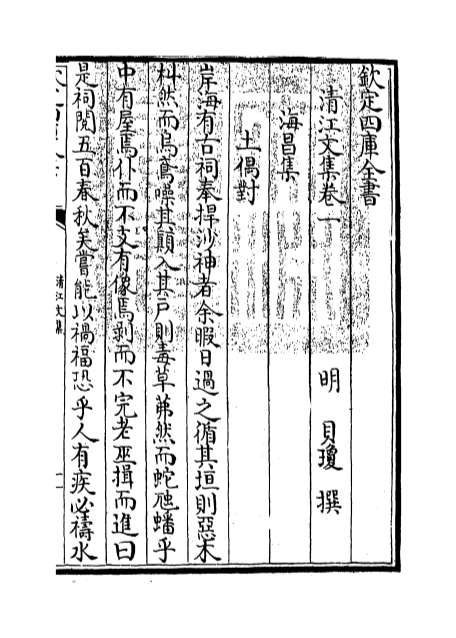 欽定四庫全書
清江文集卷一
明 貝瓊 撰
海昌集
土偶對
岸海有古祠奉捍沙神者余暇日過之循其垣則惡木
枓然而烏鳶噪其顛入其戶則毒草茀然而蛇虺蟠乎
中有屋焉仆而不支有像焉剥而不完老巫揖而進曰
是祠閱五百春秋矣嘗能以禍福恐乎人有疾必禱水
清江文集
一